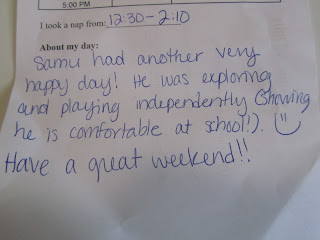 5:00 PM
I took a nap from: 12:30-2:10
About my day:
Samu had another very
happy day! He was exploring
and playing independently (showing
he is comfortable at school!). :)
Have a great weekend!!